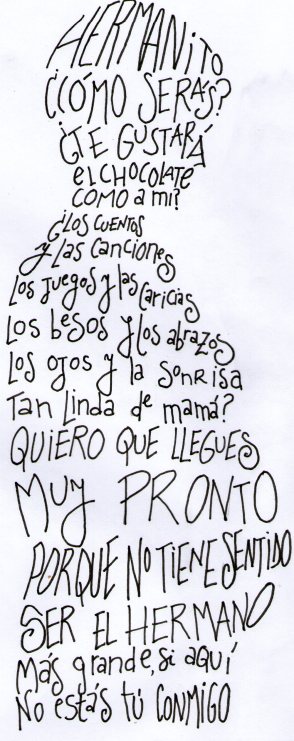 HERMANiTO
¿CÓMO SERÁS?
¿TE GUSTARÁ
eL CHOCOLATE
COMO a mi?
¿LOS CUENTOS
y las canciones
Los juegos y las caricias
Los besos y los abrazos
Los ojos y la sonrisa
Tan Linda de mamá?
QUIERO QUE LLEGUES
MUY PRONTO
PORQUE NO TIENE SENTIDO
SER EL HERMANO
Más grande, si aquí
No estás tú CONMIGO